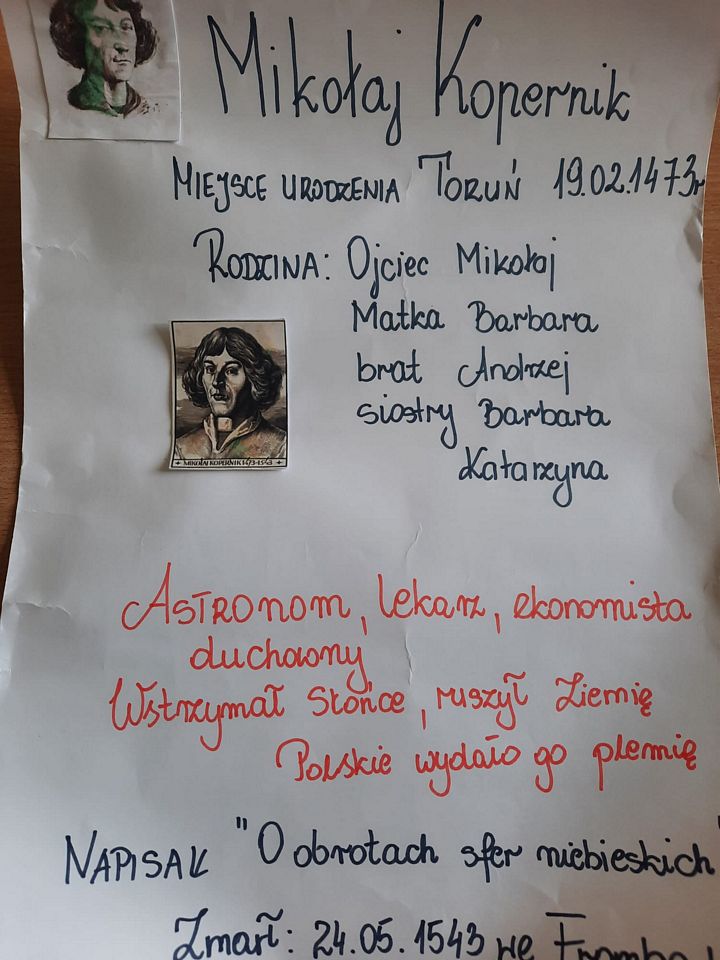 Mikołaj Kopernik
MIEJSCE URODZENIA TORUŃ 19.02.1473r
RODZINA: Ojciec Mikołaj
Matka Barbara
brat Andrzej
siostry Barbara
Katarzyna
MIKOŁAJ KOPERNIK 1473-1543
ASTRONOM, lekarz, ekonomista
duchowny
Wstrzymał Słońce, ruszył Ziemię
Polskie wydało go plemię
NAPISAŁ "O obrotach sfer niebieskich"
Zmarł: 24.05.1543 we